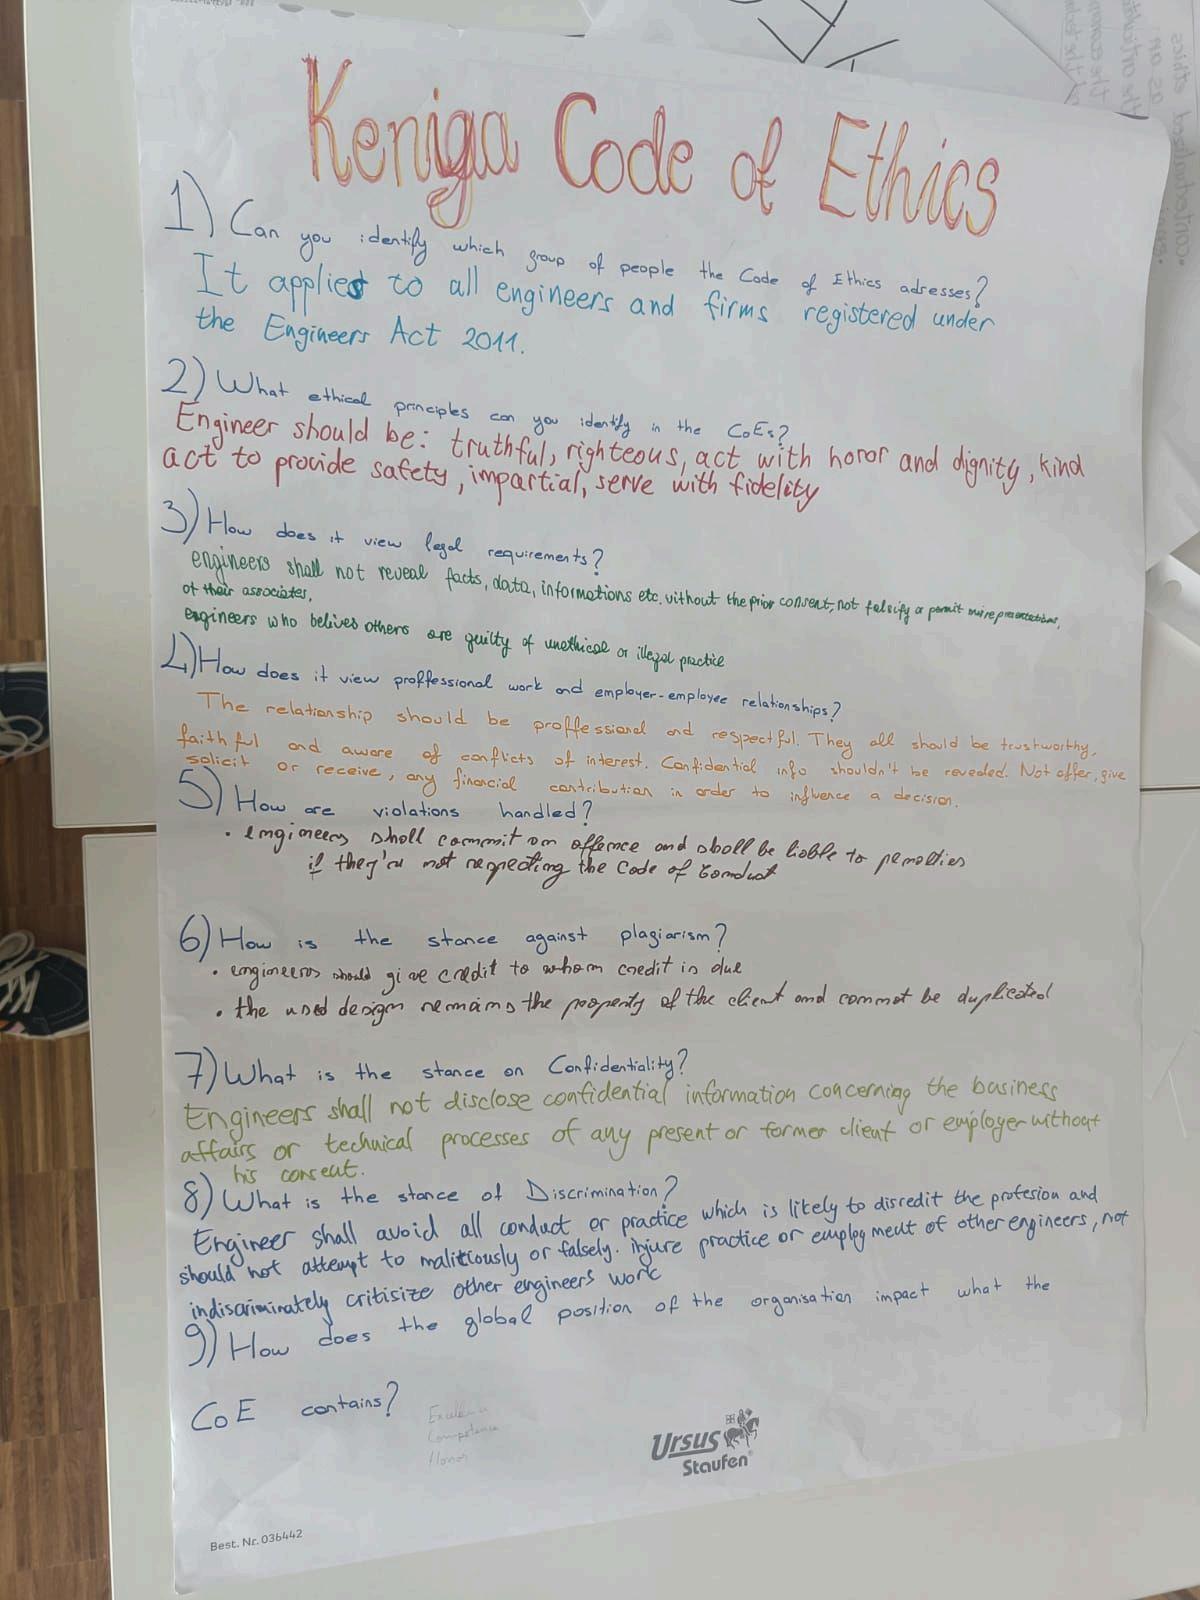 Keniga Code of Ethics
1) Can you identify which group of people the Code of Ethics adresses?
It applies to all engineers and firms registered under
the Engineers Act 2011.
2) What ethical principles can you identify in the CoEs?
Engineer should be: truthful, righteous, act with honor and dignity, kind
act to provide safety, impartial, serve with fidelity
3) How does it view legal requirements?
engineers shall not reveal facts, data, informations etc. without the prior consent, not falsify or permit misrepresentations,
of their associates.
engineers who belives others are guilty of unethical or illegal practice
4) How does it view proffessional work and employer-employee relationships?
The relationship should be proffessional and respectful. They all should be trustworthy,
faithful and aware of conflicts of interest. Confidential info shouldn't be revealed. Not offer, give
solicit or receive, any financial contribution in order to influence a decision.
5) How are violations handled?
• engineers shall commit an offence and shall be liable to penalties
if they're not respecting the Code of Conduct
6) How is the stance against plagiarism?
• engineers should give credit to whom credit is due
• the used design remains the property of the client and cannot be duplicated
7) What is the stance on Confidentiality?
Engineers shall not disclose confidential information concerning the business
affairs or technical processes of any present or former client or employer without
his consent.
8) What is the stance of Discrimination?
Engineer shall avoid all conduct or practice which is likely to disredit the profesion and
should not attempt to malitiously or falsely. injure practice or employment of other engineers, not
indiscriminately critisize other engineers work
9) How does the global position of the organisation impact what the
CoE contains?
Competence
Honor
Ursus
Staufen
Best. Nr. 036442